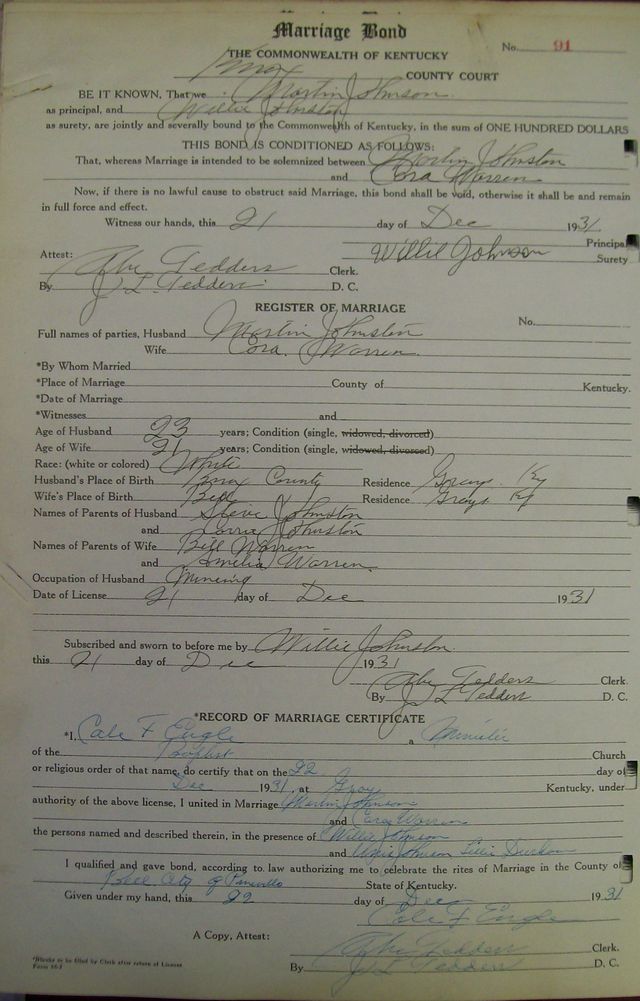 Marriage Bond
No. 91
THE COMMONWEALTH OF KENTUCKY
Knox COUNTY COURT
BE IT KNOWN, That we Martin Johnson
as principal, and Willie Johnston
as surety, are jointly and severally bound to the Commonwealth of Kentucky, in the sum of ONE HUNDRED DOLLARS
THIS BOND IS CONDITIONED AS FOLLOWS:
That, whereas Marriage is intended to be solemnized between Martin Johnston
and Cora Warren
Now, if there is no lawful cause to obstruct said Marriage, this bond shall be void, otherwise it shall be and remain
in full force and effect.
Witness our hands, this 21 day of Dec 1931.
Principal
Attest: Willie Johnson Surety
Abe Tedders Clerk.
By J L Tedders D. C.
REGISTER OF MARRIAGE
Full names of parties, Husband Martin Johnston No.
Wife Cora Warren
*By Whom Married
*Place of Marriage County of Kentucky.
*Date of Marriage
*Witnesses and
Age of Husband 23 years; Condition (single, widowed, divorced)
Age of Wife 21 years; Condition (single, widowed, divorced)
Race: (white or colored) White
Husband's Place of Birth Knox County Residence Grays Ky
Wife's Place of Birth Bell Residence Grays Ky
Names of Parents of Husband Steve Johnston
and Johnston
Names of Parents of Wife Bill Warren
and Amelia Warren
Occupation of Husband Mining
Date of License 21 day of Dec 1931
Subscribed and sworn to before me by Willie Johnston
this 21 day of Dec 1931
Abe Tedders Clerk.
By J L Tedders D. C.
*RECORD OF MARRIAGE CERTIFICATE
*I, Cale F Engle a Minister
of the Baptist Church
or religious order of that name, do certify that on the 22 day of
Dec 1931, at Gray Kentucky, under
authority of the above license, I united in Marriage Martin Johnson
and Cora Warren
the persons named and described therein, in the presence of Willie Johnson
and Johnson
I qualified and gave bond, according to law authorizing me to celebrate the rites of Marriage in the County of
Bell City of Pineville State of Kentucky.
Given under my hand, this 22 day of Dec 1931
Cale F Engle
A Copy, Attest: Abe Tedders Clerk.
By J L Tedders D. C.
*Blanks to be filed by Clerk after return of License